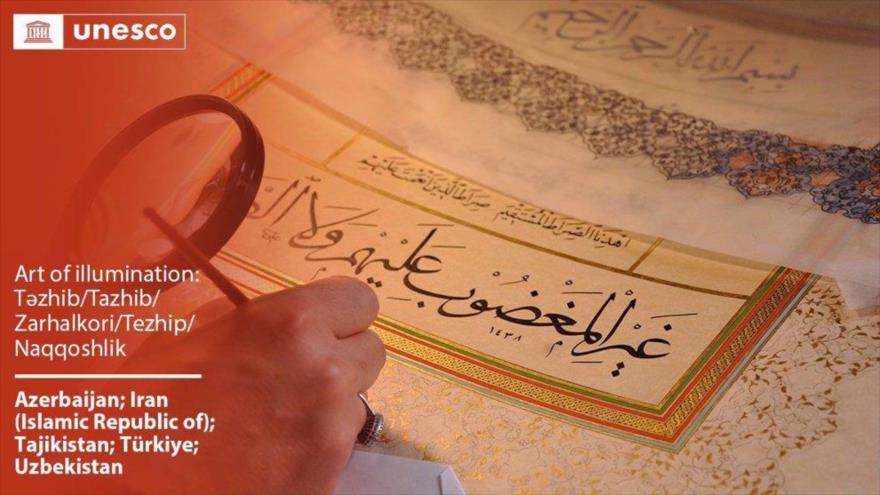 unesco
بسم الله الرحمن الرحيم
اهدنا الصراط المستقيم صراط الذين انعمت عليهم
غَيْرِ الْمَغْضُوبِ عَلَيْهِمْ وَلَا
١٤٣٨
Art of illumination:
Təzhib/Tazhib/
Zarhalkori/Tezhip/
Naqqoshlik
Azerbaijan; Iran
(Islamic Republic of);
Tajikistan; Türkiye;
Uzbekistan